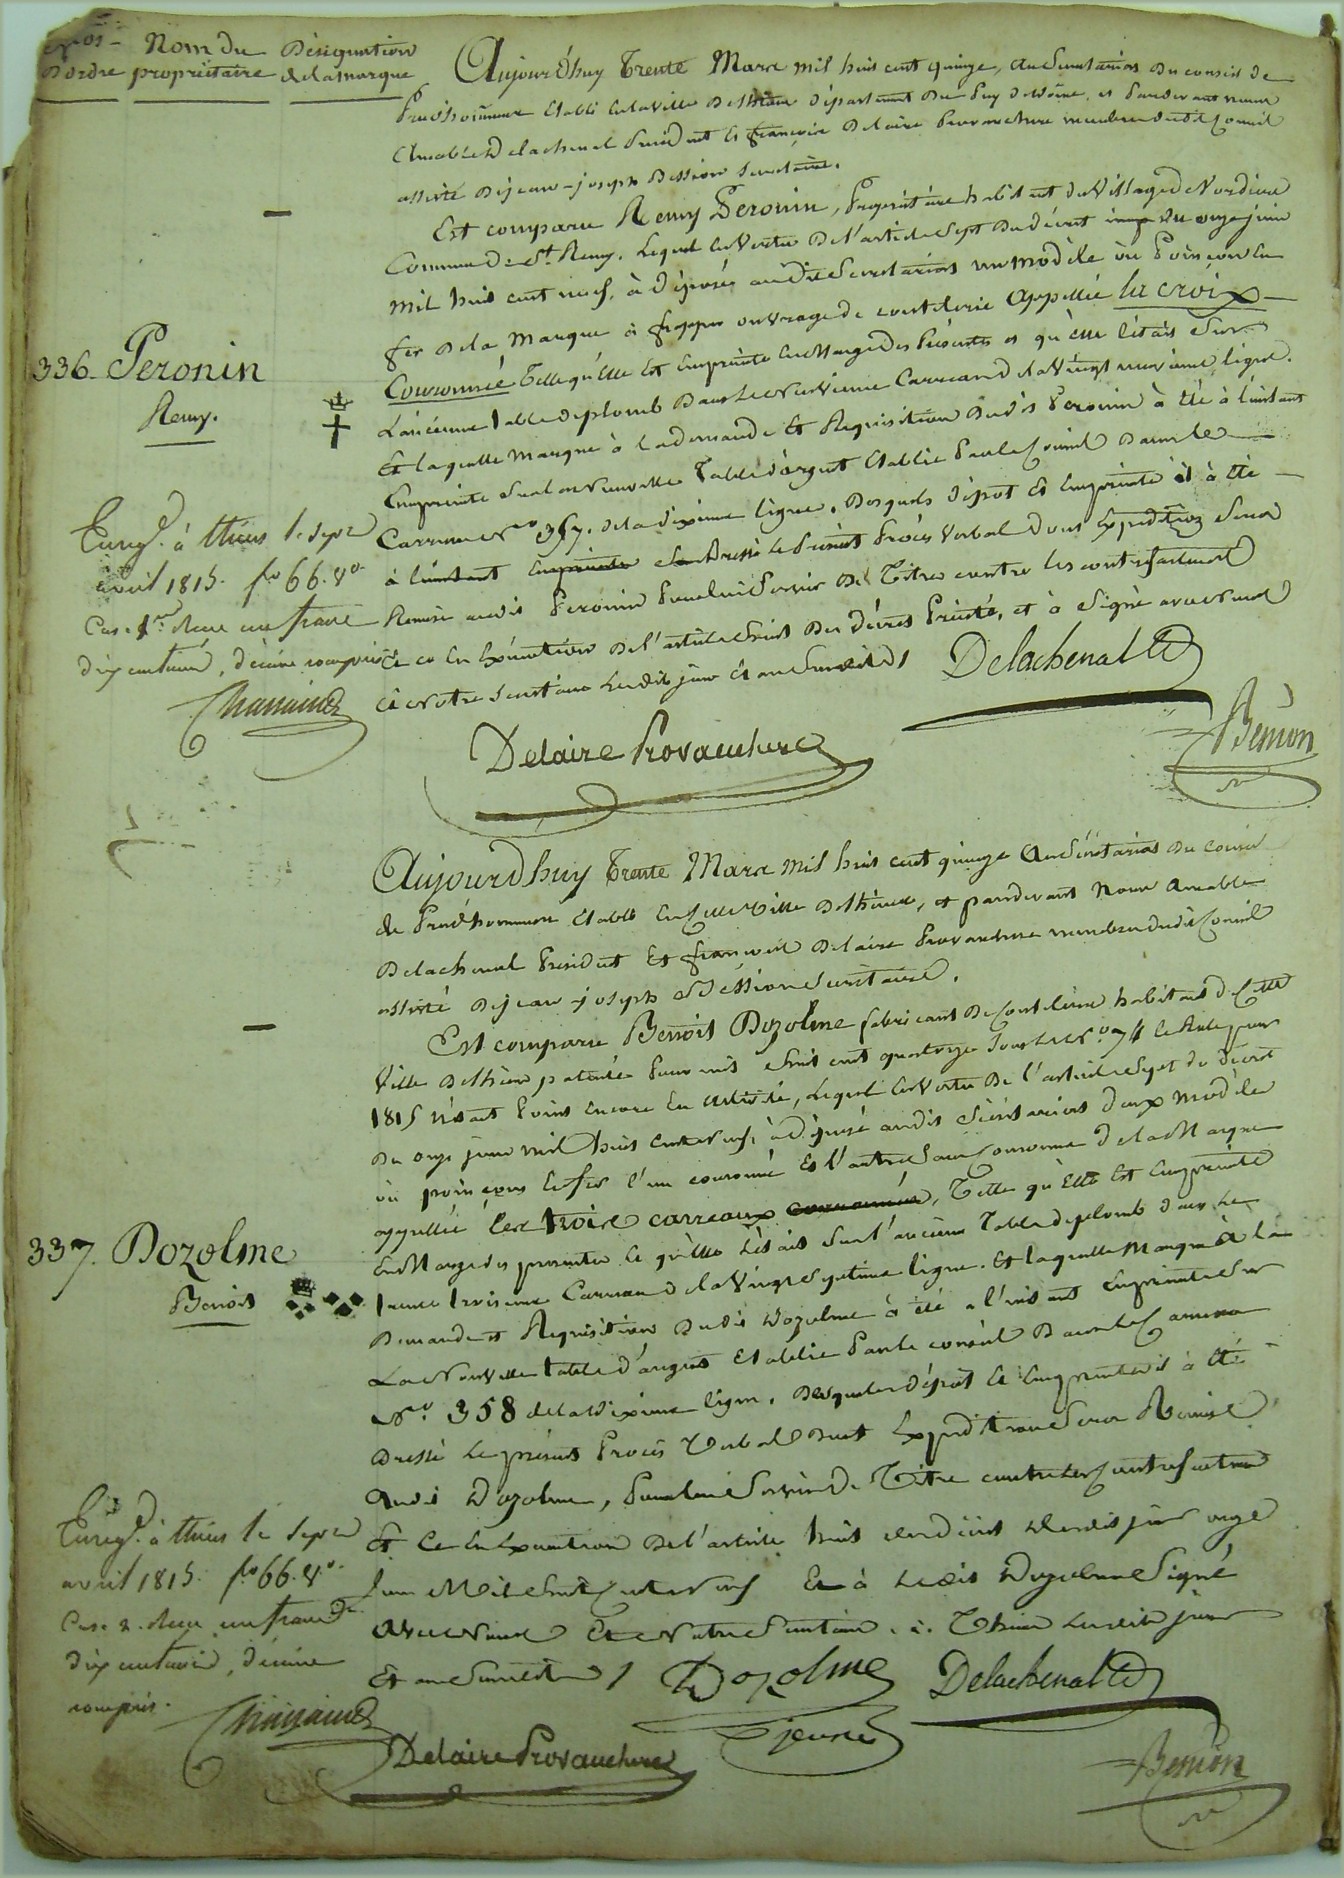 Nos Nom du Désignation
D'ordre propriétaire de la marque
Aujourd'huy Trente Mars mil huit cent quinze, au Secrétariat du conseil de
Prud'hommes Etabli en la ville de Thiers département du Puy de Dome, et Pardevant nous
Amable Delachenal Président et françois Delaire Provanchere membre dudit Conseil
assisté de jean-joseph Bession Secrétaire.
Est comparu Remy Peronin, Propriétaire habitant du Village de
Commune de St. Remy. Lequel en Vertu de l'article Sept du décret du onze juin
mil huit cent neuf, à déposé audit Secrétariat un modèle ou Poinçon en
fer de la Marque à frapper ouvrage de coutelerie Appellée la croix
Couronnée Telle qu'elle Est Empreinte en Marge des Présentes et qu'elle l'étais Sur
L'ancienne Table de plomb Dans le Carreau de la Vingt neuvième ligne.
Et laquelle Marque à la demande Et Réquisition dudit Peronin à été à l'instant
Empreinte Sur la nouvelle Table d'argent Etablie Par le Conseil Dans le
Carreau No 357. de la dixieme ligne. Desquels dépot Et Empreinte il à été
à l'instant Empreinte Dressé le Présent Procès Verbal dont Expedition Sera
Remise audit Peronin Pour lui Servir De Titre contre les contrefacteurs
Et ce En Exécution de l'article huit du décret Précité, et à Signé avec nous
et notre Secrétaire Ledit jour Et an Susdits /
Delachenal
Delaire Provanchere
Bession
336. Peronin
Remy.
Enregé. à thiers le Sept
avril 1815. fo 66. Vo
Case 1re. Reçu un franc
dix centimes, décime compris
Aujourd'huy Trente Mars mil huit cent quinze Au Secrétariat du Conseil
de Prud'hommes Etabli En Cette Ville de Thiers, et pardevant Nous Amable
Delachenal Président Et françois Delaire Provanchere membre dudit Conseil
assisté de jean-joseph Bession Secrétaire.
Est comparu Benoit Dozolme fabricant de Coutelerie habitant de Cette
Ville de Thiers patenté Pour mil huit cent quatorze Sous le No. 74 le Role pour
1815 n'étant Point encore En activité, Lequel En Vertu De l'article Sept du décret
du onze juin mil huit cent neuf, à déposé audit Secrétariat deux modèle
ou poinçons En fer l'un couronné Et l'autre Sans Couronne de la Marque
appellée les trois carreaux couronnés, Telle qu'elle Est Empreinte
En Marge des presentes Et qu'elle l'étais Sur l'ancienne Table de plomb dans Le
trente troisieme Carreau de la Vingt Septième ligne. Et laquelle Marque à la
Demande et Réquisition Dudit Dozolme à été à l'instant Empreinte Sur
La Nouvelle table d'argent Etablie Par le conseil Dans le Carreau
No. 358 de la dixieme ligne. Desquels dépot Et Empreinte il à été
Dressé Le présent Procès Verbal dont Expedition Sera Remise
Audit Dozolme, Pour lui Servir De Titre contre les Contrefacteurs
Et Ce En Exécution De l'article huit dudit juin onze
juin Mil huit Cent Neuf Et à Ledit Dozolme Signé
Avec Nous Et Notre Secrétaire. à Thiers Ledit jour
Et an Susdits /
Dozolme
jeune
Delachenal
Delaire Provanchere
Bession
337. Dozolme
Benoit
Enregé. à thiers le Sept
avril 1815. fo 66. Vo.
Case 2. Reçu un franc
dix centimes, décime
compris.